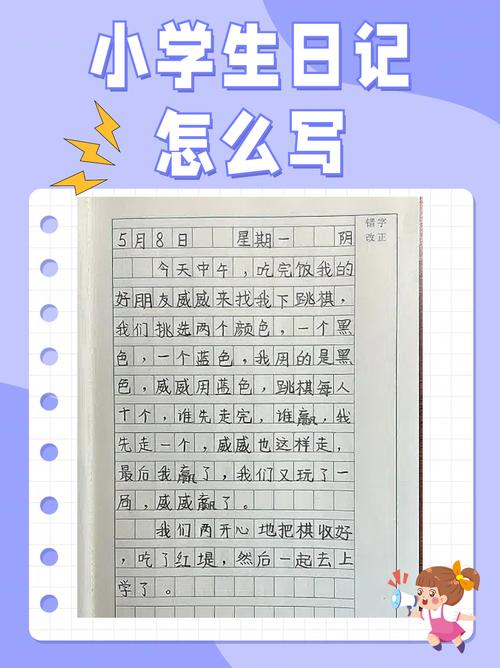 小学生日记
怎么写
错字
改正
5月8日 星期一 阴
今天中午，吃完饭我的
好朋友威威来找我下跳棋，
我们挑选两个颜色，一个黑
色，一个蓝色，我用的是黑
色，威威用蓝色，跳棋每人
十个，谁先走完，谁赢，我
先走一个，威威也这样走，
最后我赢了，我们又玩了一
局，威威赢了。
我们两开心地把棋收好
，吃了红堤，然后一起去上
学了。